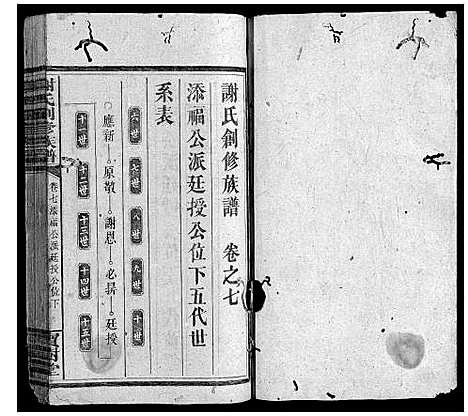 謝氏創修族譜 卷之七
添福公派廷授公位下五代世
系表
六世 七世 八世 九世 十世
應新 原敬 謝恩 必揚 廷授
十一世 十二世 十三世 十四世 十五世
謝氏創修族譜
卷七添福公派廷授公位下
寶樹堂